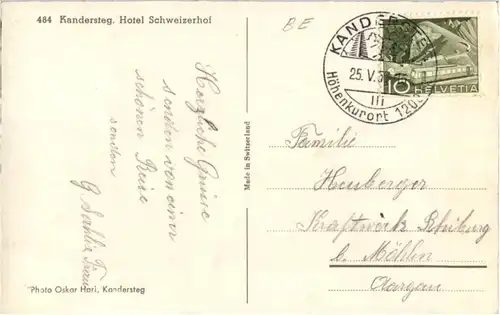 484 Kandersteg, Hotel Schweizerhof
BE
KANDERSTEG
25. V. 5
III
Höhenkurort 1200
10 HELVETIA
Herzliche Grüsse
senden von einer
schönen Reise
senden
G
Made in Switzerland
Familie
Heuberger
Kraftwerk Ryburg
b. Möhlin
Aargau
Photo Oskar Hari, Kandersteg